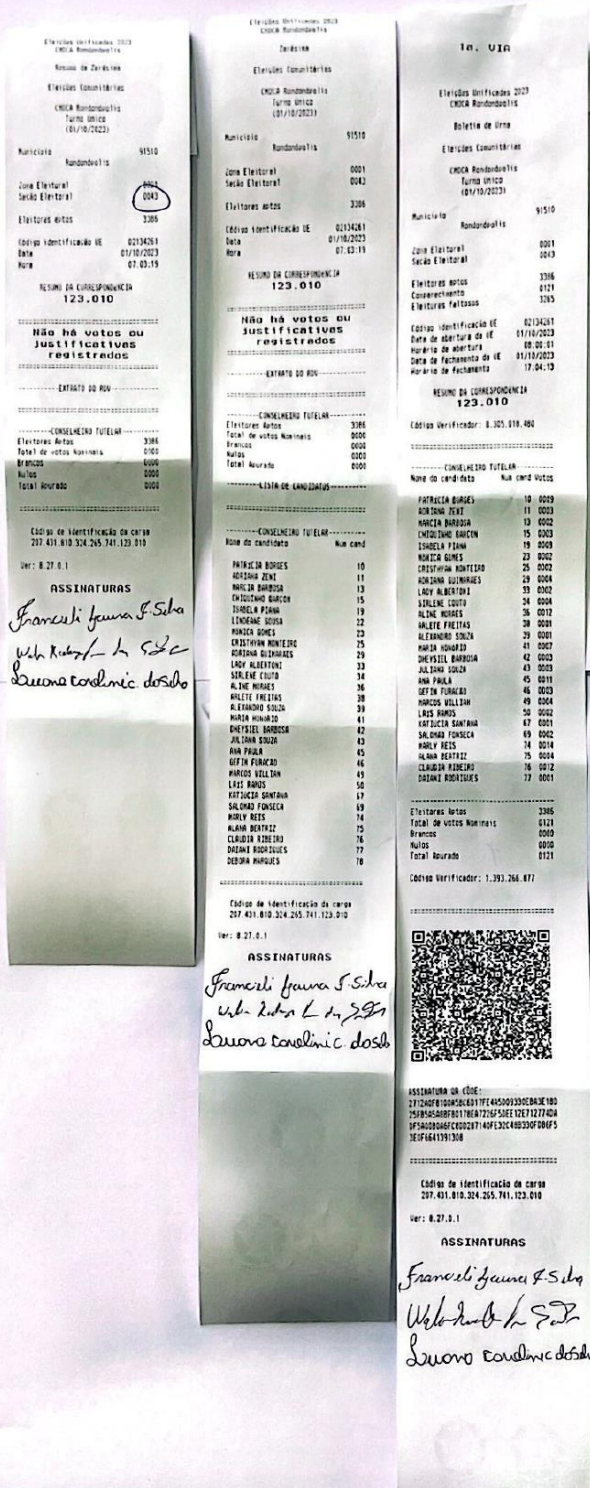 Eleições Unificadas 2023
CMDCA Rondonópolis
Resumo da Zerésima
Eleições Comunitárias
CMDCA Rondonópolis
Turno Único
(01/10/2023)
Município 91510
Rondonópolis
Zona Eleitoral 0001
Seção Eleitoral 0043
Eleitores aptos 3386
Código identificação UE 02134261
Data 01/10/2023
Hora 07:03:19
RESUMO DA CORRESPONDÊNCIA
123.010
Não há votos ou
justificativas
registrados
EXTRATO DO RDV
CONSELHEIRO TUTELAR
Eleitores Aptos 3386
Total de votos Nominais 0000
Brancos 0000
Nulos 0000
Total Apurado 0000
Código de identificação da carga
207.431.810.324.265.741.123.010
Ver: 8.27.0.1
ASSINATURAS
Eleições Unificadas 2023
CMDCA Rondonópolis
Zerésima
Eleições Comunitárias
CMDCA Rondonópolis
Turno Único
(01/10/2023)
Município 91510
Rondonópolis
Zona Eleitoral 0001
Seção Eleitoral 0043
Eleitores aptos 3386
Código identificação UE 02134261
Data 01/10/2023
Hora 07:03:19
RESUMO DA CORRESPONDÊNCIA
123.010
Não há votos ou
justificativas
registrados
EXTRATO DO RDV
CONSELHEIRO TUTELAR
Eleitores Aptos 3386
Total de votos Nominais 0000
Brancos 0000
Nulos 0000
Total Apurado 0000
LISTA DE CANDIDATOS
CONSELHEIRO TUTELAR
Nome do candidato Num cand
PATRICIA BORGES 10
ADRIANA ZENI 11
MARCIA BARBOSA 13
CHIQUINHO GARCON 15
ISABELA PIANA 19
LINDEANE SOUSA 22
MONICA GOMES 23
CRISTHYAN MONTEIRO 25
ADRIANA GUIMARAES 29
LADY ALBERTONI 33
SIRLENE COUTO 34
ALINE MORAES 36
ARLETE FREITAS 38
ALEXANDRO SOUZA 39
MARIA HONORIO 41
DHEYSIEL BARBOSA 42
JULIANA SOUZA 43
ANA PAULA 45
GEFIN FURACAO 46
MARCOS WILLIAN 49
LAIS RAMOS 50
KATIUCIA SANTANA 67
SALOMAO FONSECA 69
MARLY REIS 74
ALANA BEATRIZ 75
CLAUDIA RIBEIRO 76
DAIANI RODRIGUES 77
DEBORA MARQUES 78
Código de identificação da carga
207.431.810.324.265.741.123.010
Ver: 8.27.0.1
ASSINATURAS
1a. VIA
Eleições Unificadas 2023
CMDCA Rondonópolis
Boletim de Urna
Eleições Comunitárias
CMDCA Rondonópolis
Turno Único
(01/10/2023)
Município 91510
Rondonópolis
Zona Eleitoral 0001
Seção Eleitoral 0043
Eleitores aptos 3386
Comparecimento 0121
Eleitores faltosos 3265
Código identificação UE 02134261
Data de abertura da UE 01/10/2023
Horário de abertura 08:00:01
Data de fechamento da UE 01/10/2023
Horário de fechamento 17:04:13
RESUMO DA CORRESPONDÊNCIA
123.010
Código Verificador: 8.305.018.480
CONSELHEIRO TUTELAR
Nome do candidato Num cand Votos
PATRICIA BORGES 10 0009
ADRIANA ZENI 11 0003
MARCIA BARBOSA 13 0002
CHIQUINHO GARCON 15 0003
ISABELA PIANA 19 0009
MONICA GOMES 23 0002
CRISTHYAN MONTEIRO 25 0002
ADRIANA GUIMARAES 29 0004
LADY ALBERTONI 33 0002
SIRLENE COUTO 34 0004
ALINE MORAES 36 0012
ARLETE FREITAS 38 0001
ALEXANDRO SOUZA 39 0001
MARIA HONORIO 41 0007
DHEYSIEL BARBOSA 42 0003
JULIANA SOUZA 43 0003
ANA PAULA 45 0011
GEFIN FURACAO 46 0003
MARCOS WILLIAN 49 0004
LAIS RAMOS 50 0002
KATIUCIA SANTANA 67 0001
SALOMAO FONSECA 69 0002
MARLY REIS 74 0014
ALANA BEATRIZ 75 0004
CLAUDIA RIBEIRO 76 0012
DAIANI RODRIGUES 77 0001
Eleitores Aptos 3386
Total de votos Nominais 0121
Brancos 0000
Nulos 0000
Total Apurado 0121
Código Verificador: 1.393.266.877
ASSINATURA QR CODE:
Código de identificação da carga
207.431.810.324.265.741.123.010
Ver: 8.27.0.1
ASSINATURAS